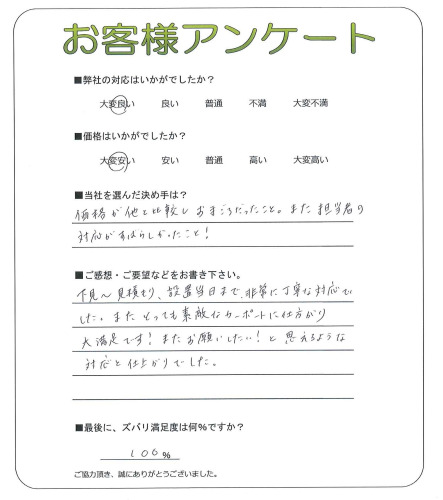 お客様アンケート
■弊社の対応はいかがでしたか？
大変良い 良い 普通 不満 大変不満
■価格はいかがでしたか？
大変安い 安い 普通 高い 大変高い
■当社を選んだ決め手は？
価格が他と比較しおまごろだったこと。また担当者の
対応がすばらしかったこと！
■ご感想・ご要望などをお書き下さい。
下見〜見積もり、設置当日まで、非常に丁寧な対応で
した。また とっても素敵なカーポートに仕上がり
大満足です！またお願いしたい！と思えるような
対応と仕上がりでした。
■最後に、ズバリ満足度は何％ですか？
100％
ご協力頂き、誠にありがとうございました。